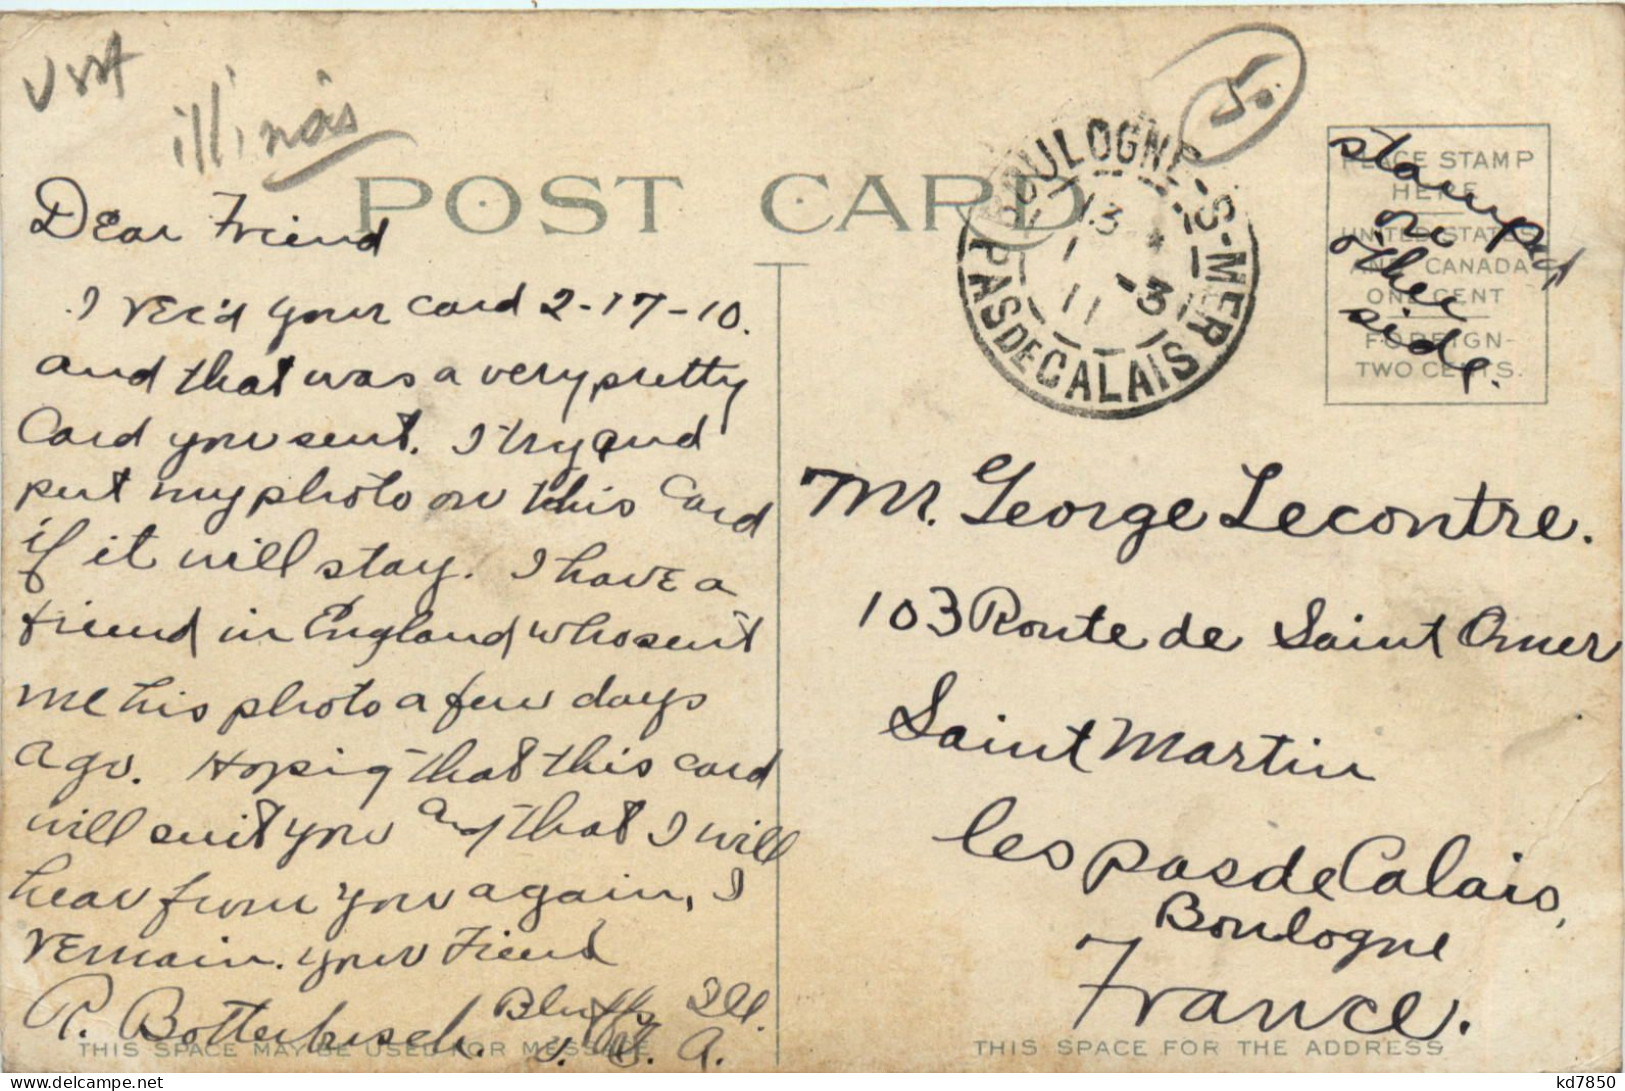 USA
illinois
POST CARD
Dear Friend
I rec'd your card 2-17-10.
and that was a very pretty
Card you sent. I try and
put my photo on this Card
if it will stay. I have a
friend in England who sent
me his photo a few days
ago. Hoping that this card
will suit you and that I will
hear from you again, I
remain. your Friend
Bluffs Ill.
U. S. A.
THIS SPACE MAY BE USED FOR MESSAGE
50
BOULOGNE-S-MER
13
11 -3
11
PAS DE CALAIS
PLACE STAMP
HERE
UNITED STATES
AND CANADA
ONE CENT
FOREIGN-
TWO CENTS.
stamped
on
other
side.
Mr. George Lecontre.
103 Route de Saint Omer
Saint Martin
les pas de Calais,
Boulogne
France.
THIS SPACE FOR THE ADDRESS
kd7850